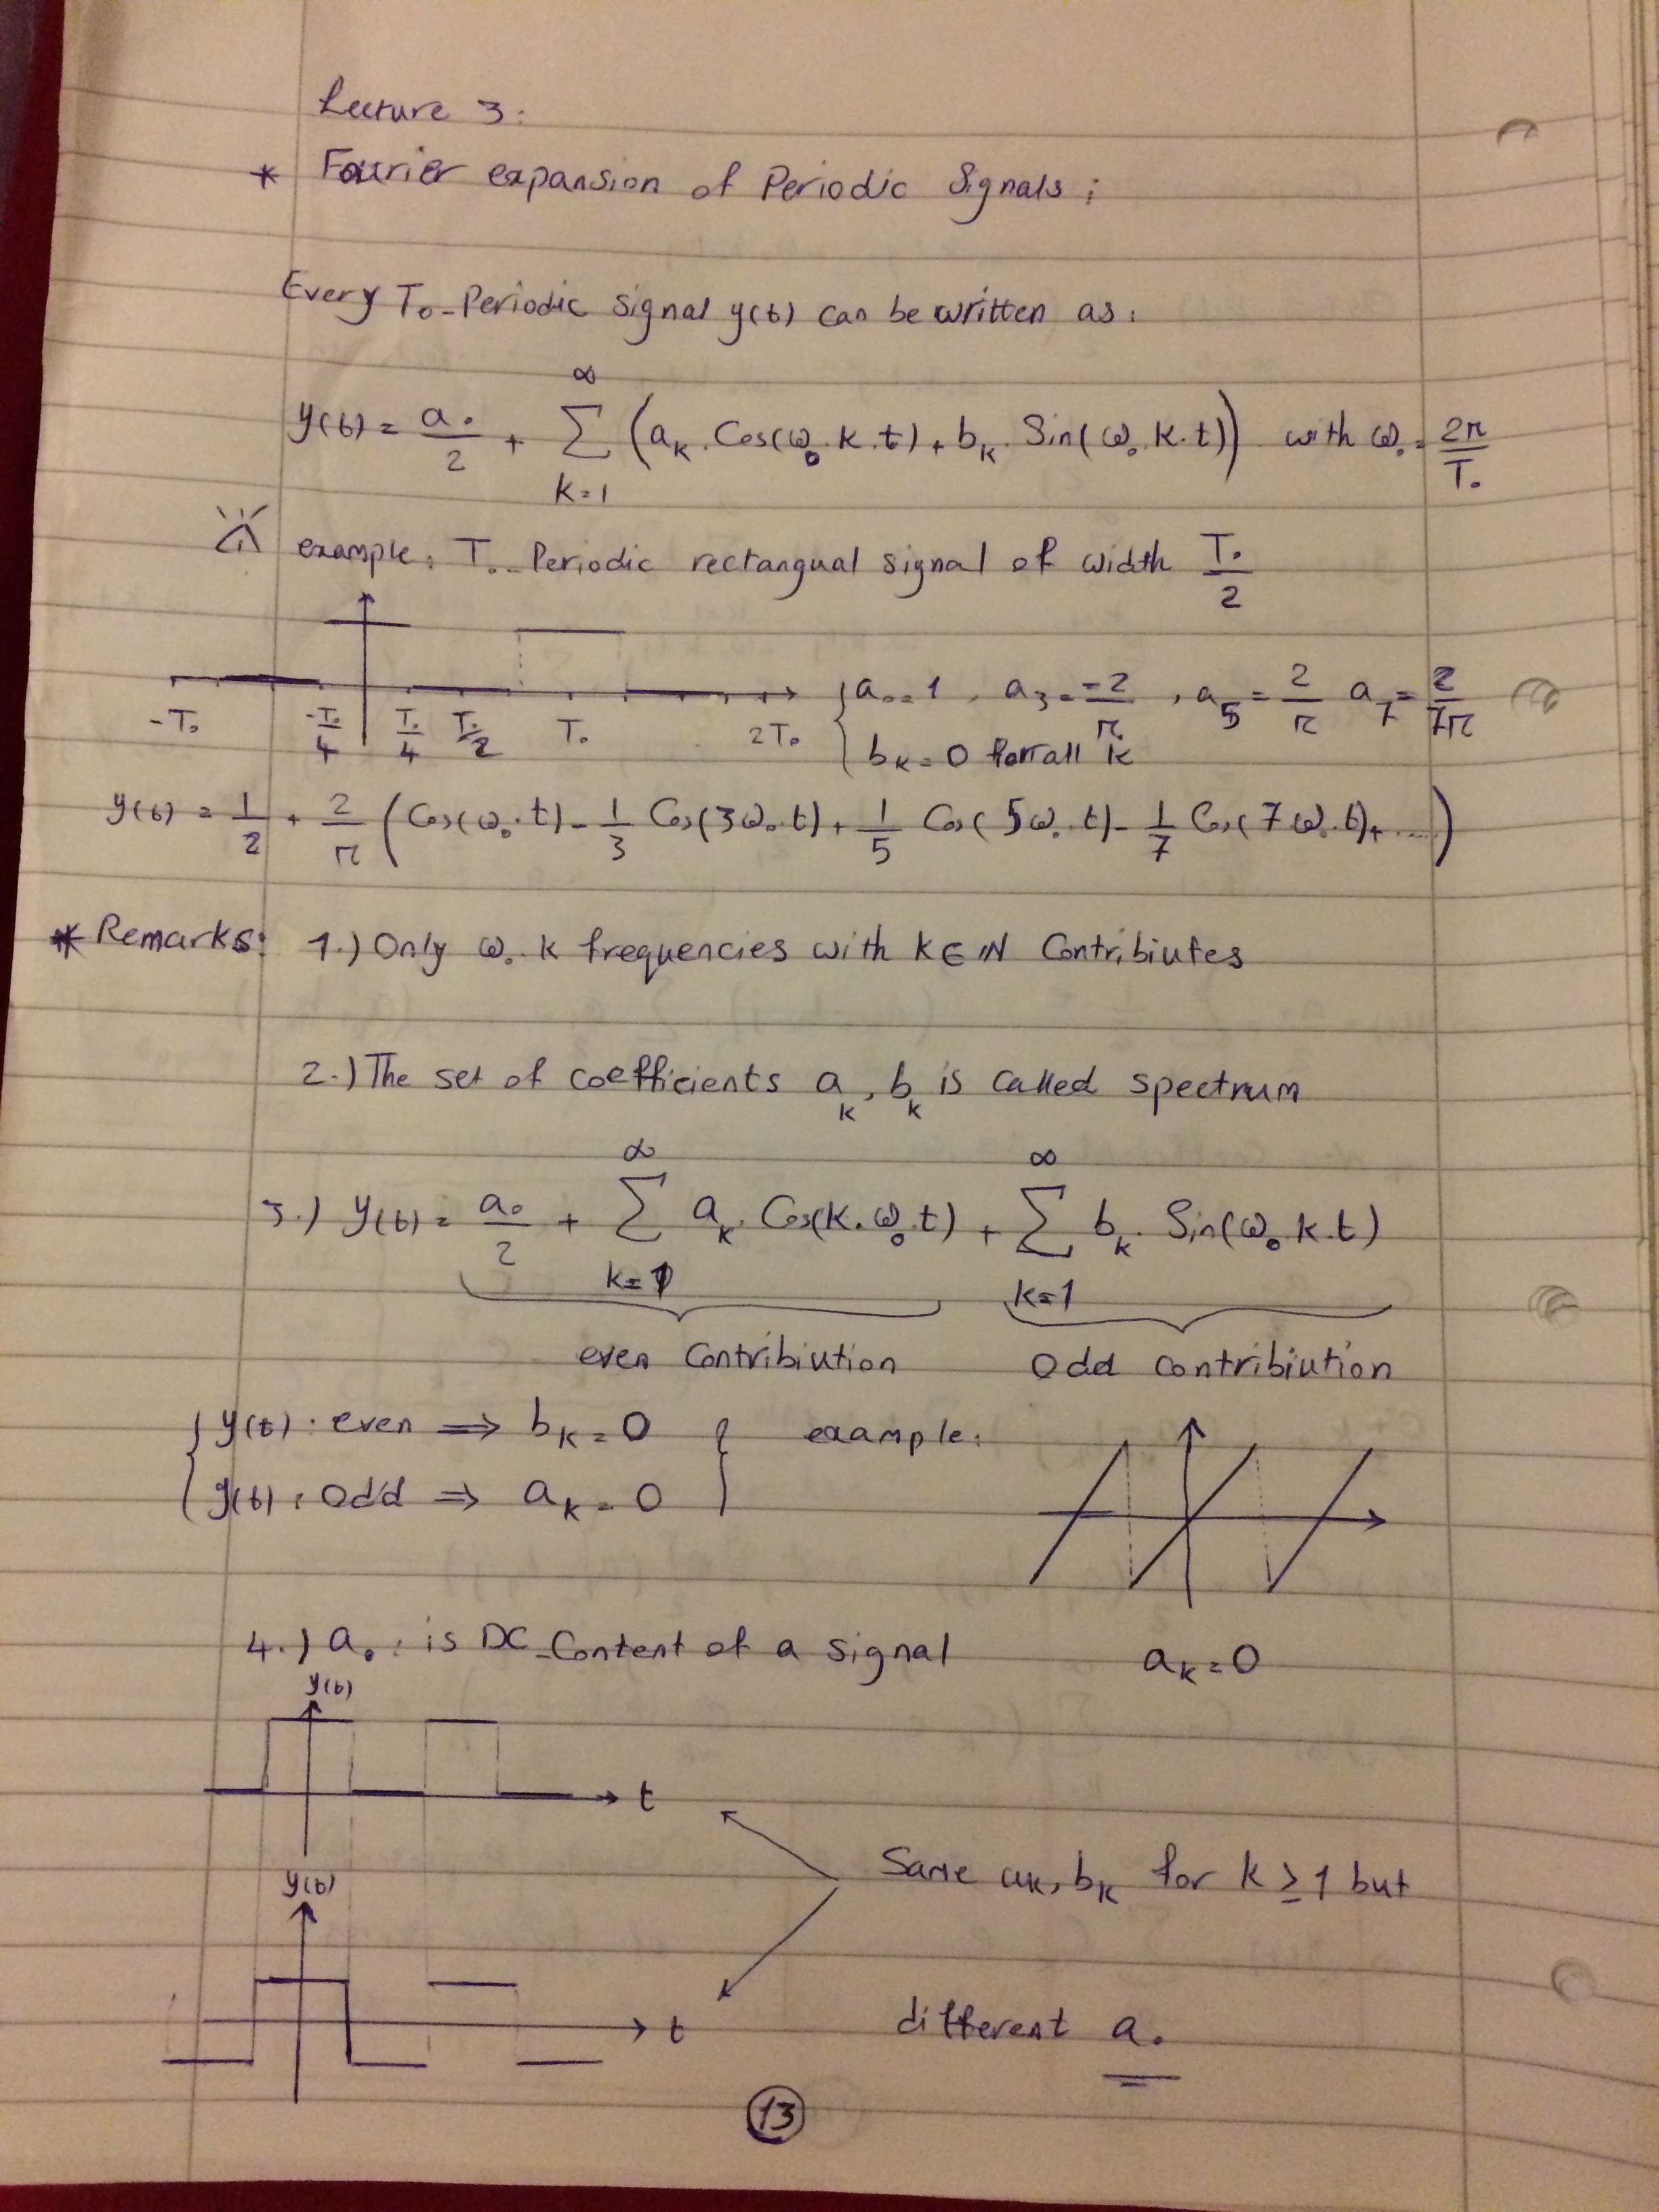 Lecture 3:
* Fourier expansion of Periodic Signals:
Every T₀-Periodic signal y(t) can be written as:
y(t) = a₀/2 + ∑_{k=1}^{∞} (a_k . Cos(ω₀.k.t) + b_k . Sin(ω₀.k.t)) with ω₀ = 2π/T₀
example: T₀-Periodic rectangual signal of width T₀/2
-T₀ -T₀/4 T₀/4 T₀/2 T₀ 2T₀ { a₀ = 1, a₃ = -2/π, a₅ = 2/π a₇ = 2/7π
b_k = 0 for all k
y(t) = 1/2 + 2/π (Cos(ω₀.t) - 1/3 Cos(3ω₀.t) + 1/5 Cos(5ω₀.t) - 1/7 Cos(7ω₀.t) + ....)
* Remarks: 1.) Only ω₀.k frequencies with k∈ℕ Contribiutes
2.) The set of coefficients a_k, b_k is called spectrum
3.) y(t) = a₀/2 + ∑_{k=1}^{∞} a_k . Cos(k.ω₀.t) + ∑_{k=1}^{∞} b_k . Sin(ω₀.k.t)
even Contribiution odd contribiution
{ y(t): even ⇒ b_k = 0 } example:
y(t): odd ⇒ a_k = 0
4.) a₀: is DC-Content of a signal a_k = 0
y(t)
t
Same a_k, b_k for k ≥ 1 but
y(t)
t
different a₀
13